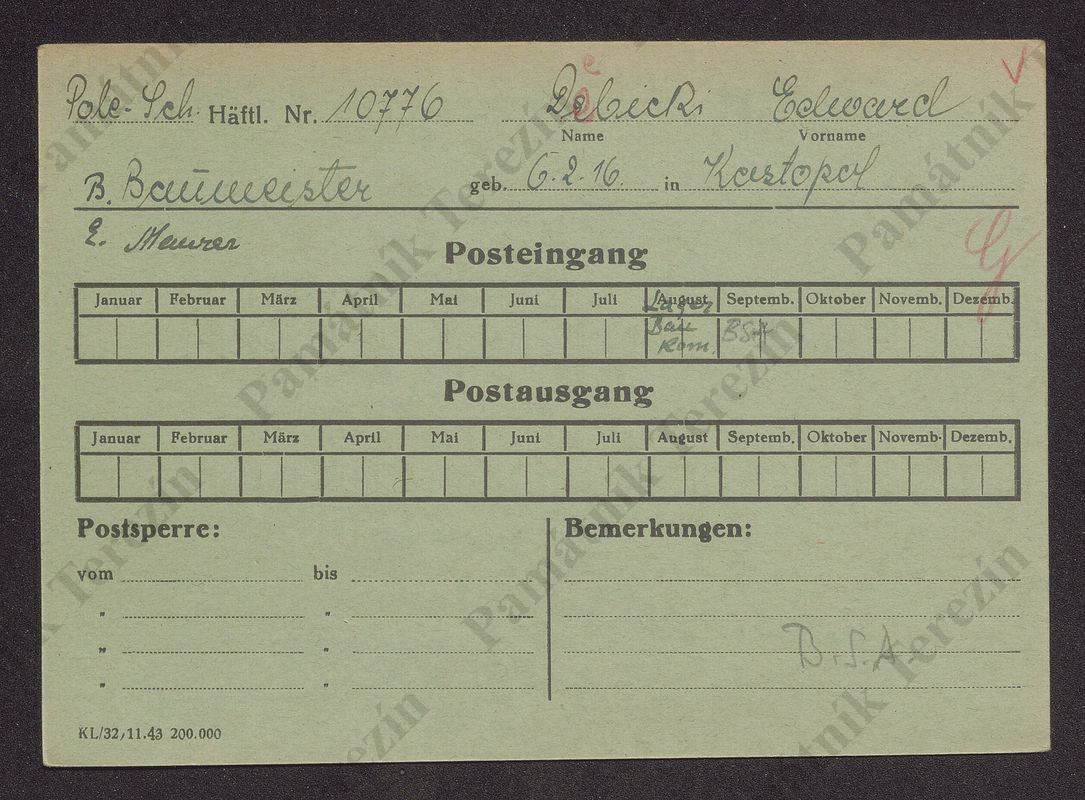 Pole-Sch. Häftl. Nr. 10776 Debicki Edward
Name Vorname
B. Baumeister geb. 6.2.16. in Kostopol
E. Maurer
Posteingang
Januar Februar März April Mai Juni Juli August Septemb. Oktober Novemb. Dezemb.
Lager
Bau BSA
Kom.
Postausgang
Januar Februar März April Mai Juni Juli August Septemb. Oktober Novemb. Dezemb.
Postsperre: Bemerkungen:
vom bis
" "
" "
B.S.A.
" "
KL/32/11.43 200.000
Památník Terezín